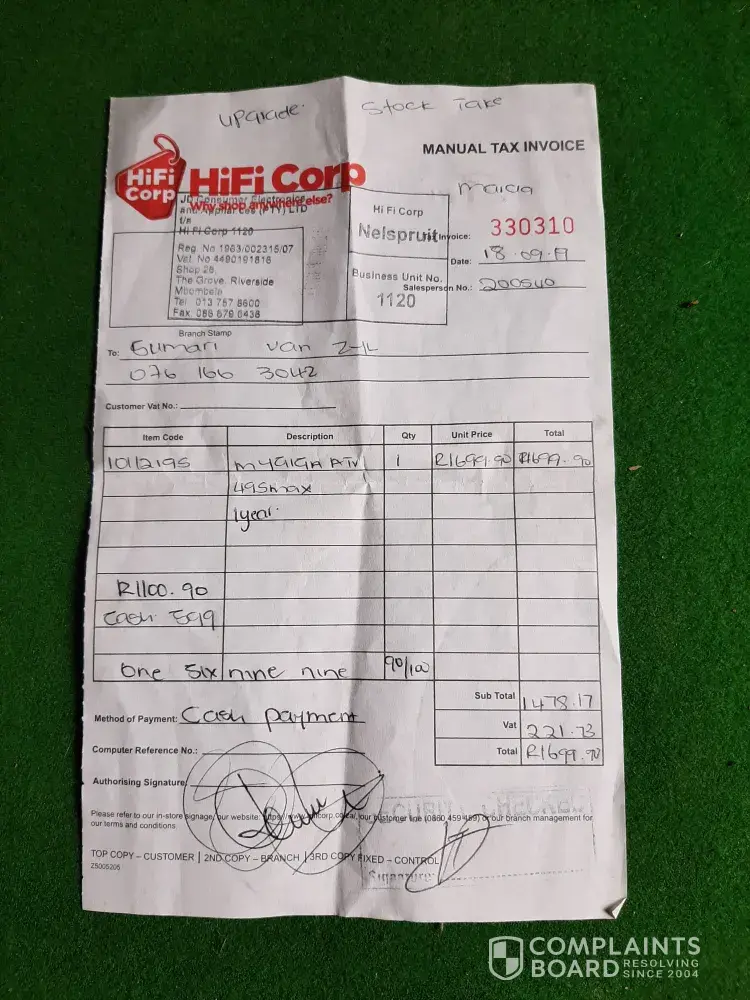 upgrade. Stock Take
MANUAL TAX INVOICE
HiFi Corp
HiFi Corp
Why shop anywhere else?
Marcia
JD Consumer Electronics
and Appliances (PTY) LTD
t/a
Hi Fi Corp 1120
Reg. No 1963/002315/07
Vat. No 4490191816
Shop 26
The Grove, Riverside
Mbombela
Tel 013 757 8600
Fax 086 679 6438
Branch Stamp
Hi Fi Corp
Nelspruit
Business Unit No.
1120
Invoice: 330310
Date: 18.09.19
Salesperson No.: 200540
To: Sumari van Zyl
076 166 3042
Customer Vat No.:
Item Code Description Qty Unit Price Total
10112195 1 R1699.90 R1699.90
1year.
R1100.90
Cash
One six nine nine 90/100
Sub Total 1478.17
Method of Payment: Cash payment
Vat 221.73
Computer Reference No.:
Total R1699.90
Authorising Signature
SECURITY CHECKED
Please refer to our in-store signage, our website: https://www.hificorp.co.za/, our customer line (0860 459 459) or our branch management for
our terms and conditions.
TOP COPY – CUSTOMER | 2ND COPY – BRANCH | 3RD COPY FIXED – CONTROL
Signature:
ZS005205
COMPLAINTS
BOARD RESOLVING
SINCE 2004